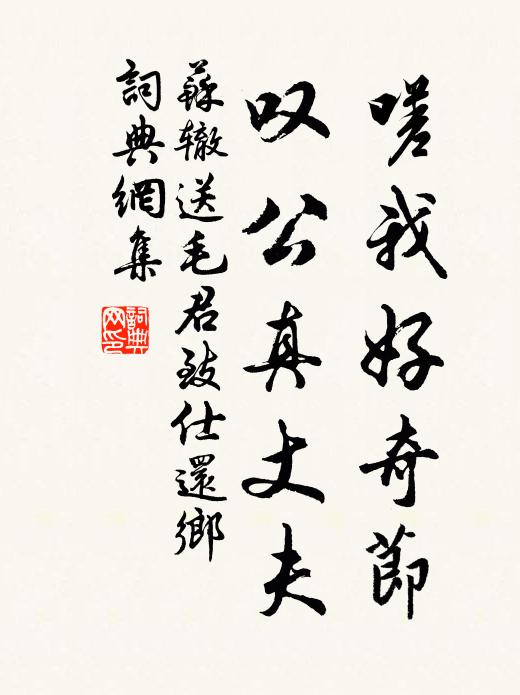 嗟我好奇節
叹公真丈夫
蘇辙送毛君致仕還鄉
詞典網集
詞典网印